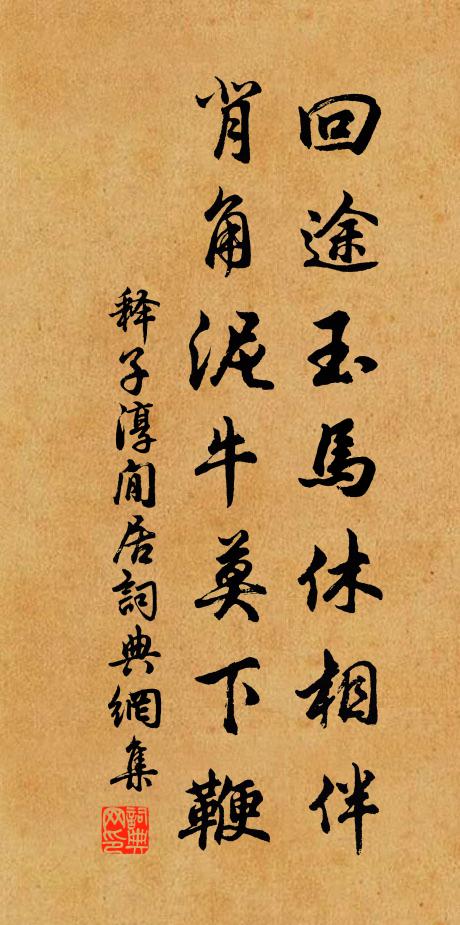 回途玉馬休相伴
背角泥牛莫下鞭
释子淳閒居詞典網集
詞典网印